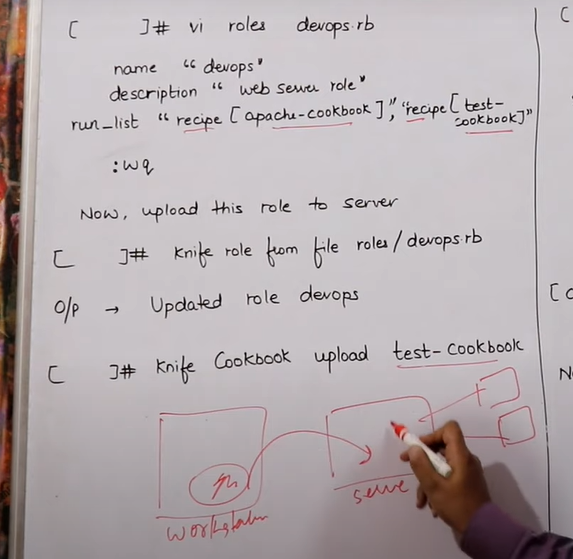 [ ]# vi roles devops.rb
name “devops”
description “web server role”
run_list “recipe [apache-cookbook]”, “recipe [test-
cookbook]”
:wq
Now, upload this role to server
[ ]# Knife role from file roles/devops.rb
O/P → Updated role devops
[ ]# Knife Cookbook upload test-cookbook
workstation
serve